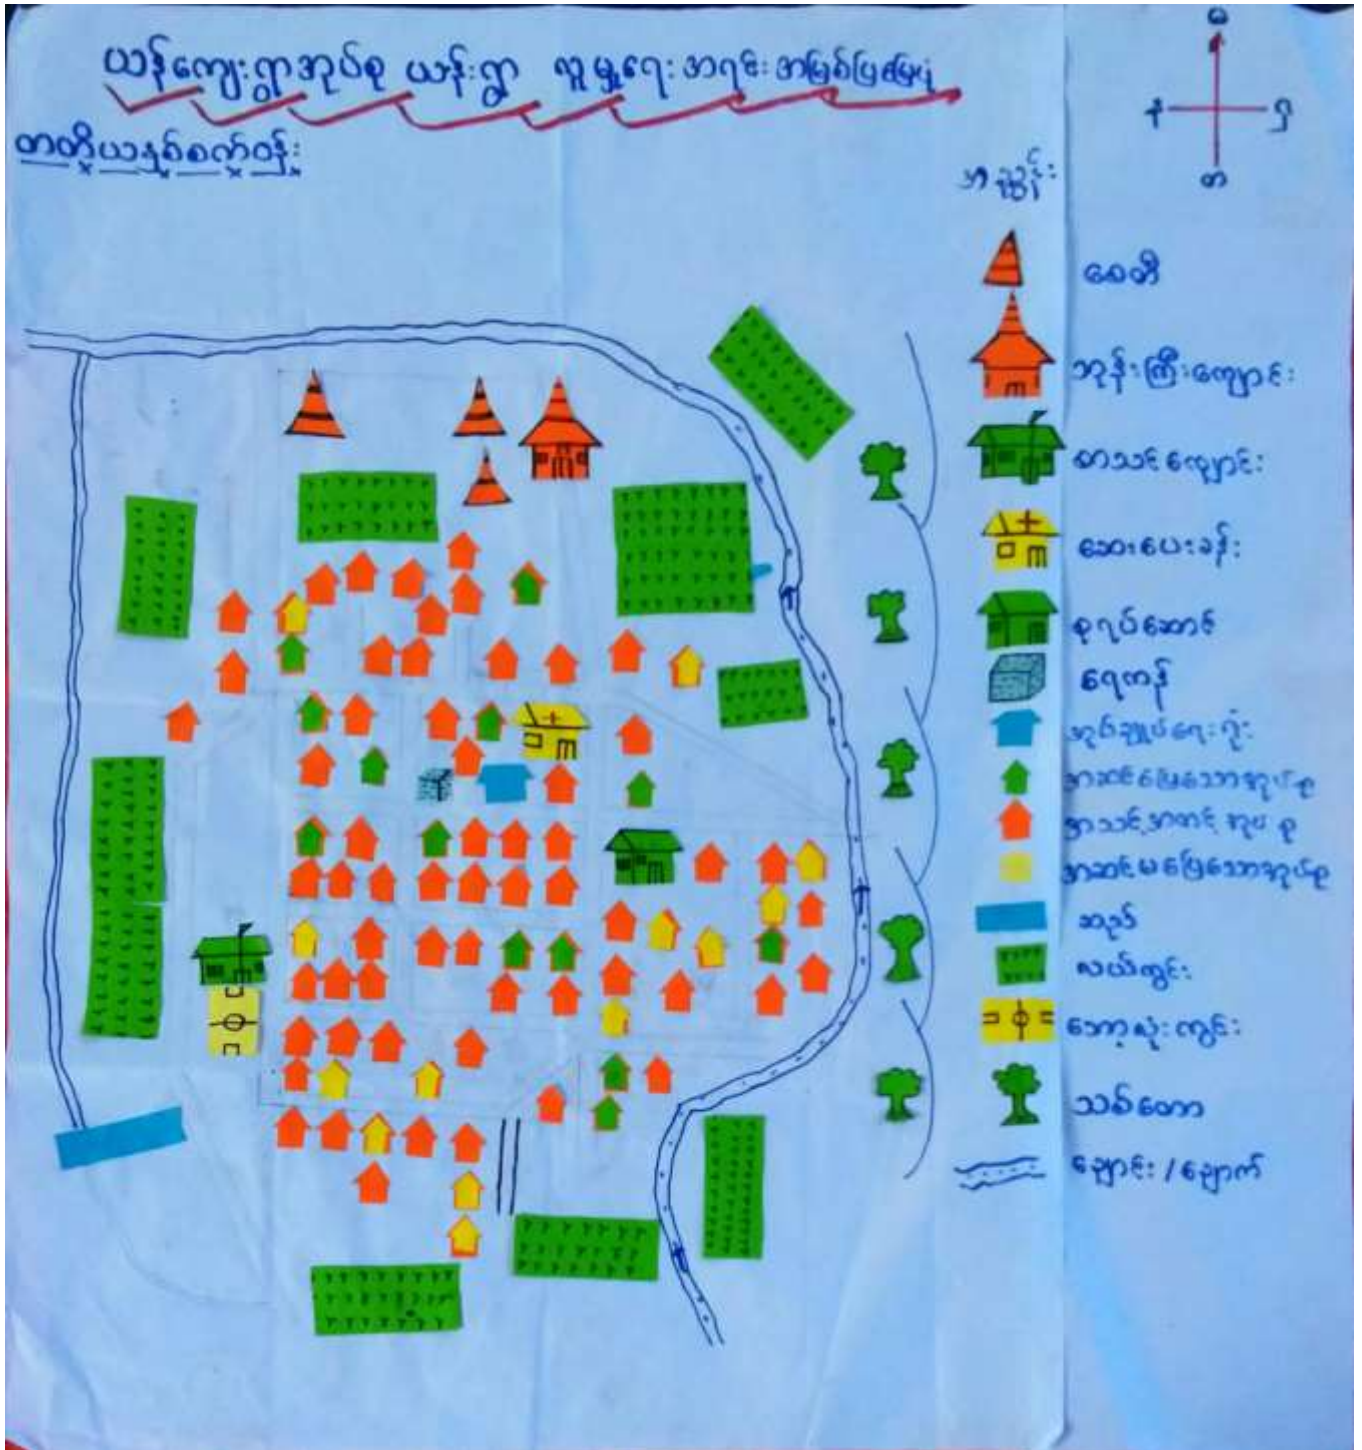 ယန်ကျေးရွာအုပ်စု ယန်းရွာ လူမှုရေးအရင်းအမြစ်ပြမြေပုံ
တတိယနှစ်စက်ဝန်း
မ
န
ရှ
တ
အညွှန်း
စေတီ
ဘုန်းကြီးကျောင်း
စာသင်ကျောင်း
ဆေးပေးခန်း
စုရပ်ဆောင်
ရေကန်
အုပ်ချုပ်ရေးရုံး
အဆင်ပြေသောအုပ်စု
အသင့်အတင့်အုပ်စု
အဆင်မပြေသောအုပ်စု
ဆည်
လယ်ကွင်း
ဘောလုံးကွင်း
သစ်တော
ချောင်း/ချောက်